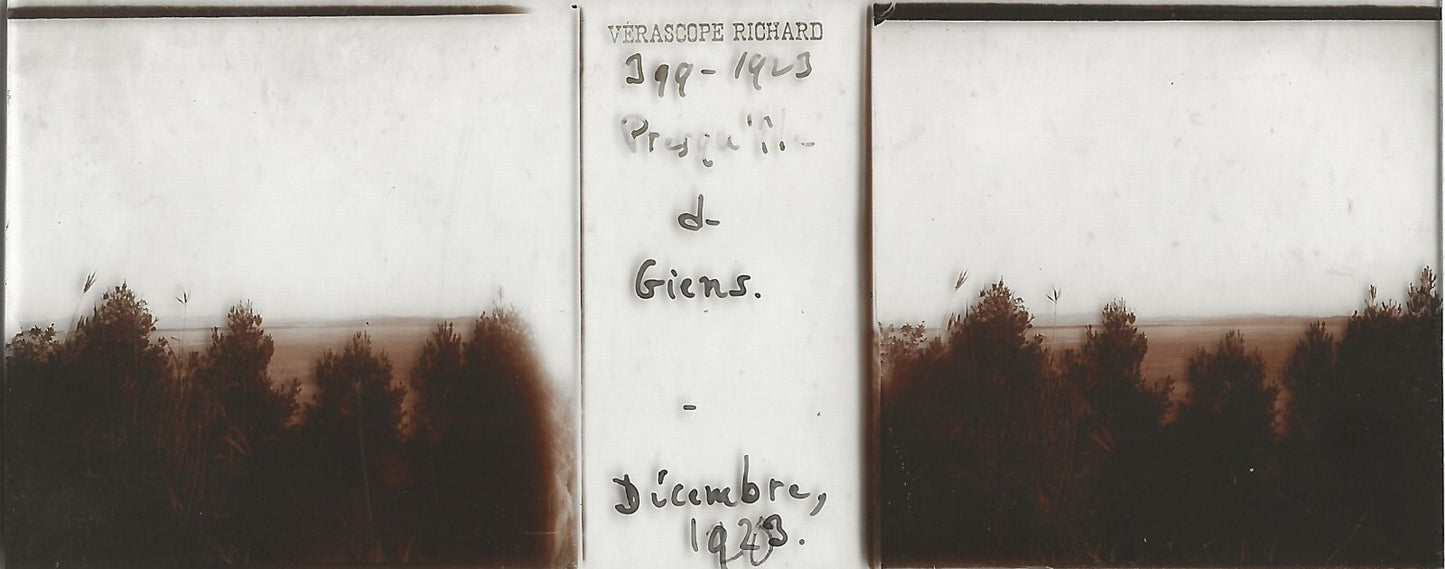 VÉRASCOPE RICHARD
399-1923
Presqu'île
de
Giens.
-
Décembre,
1923.